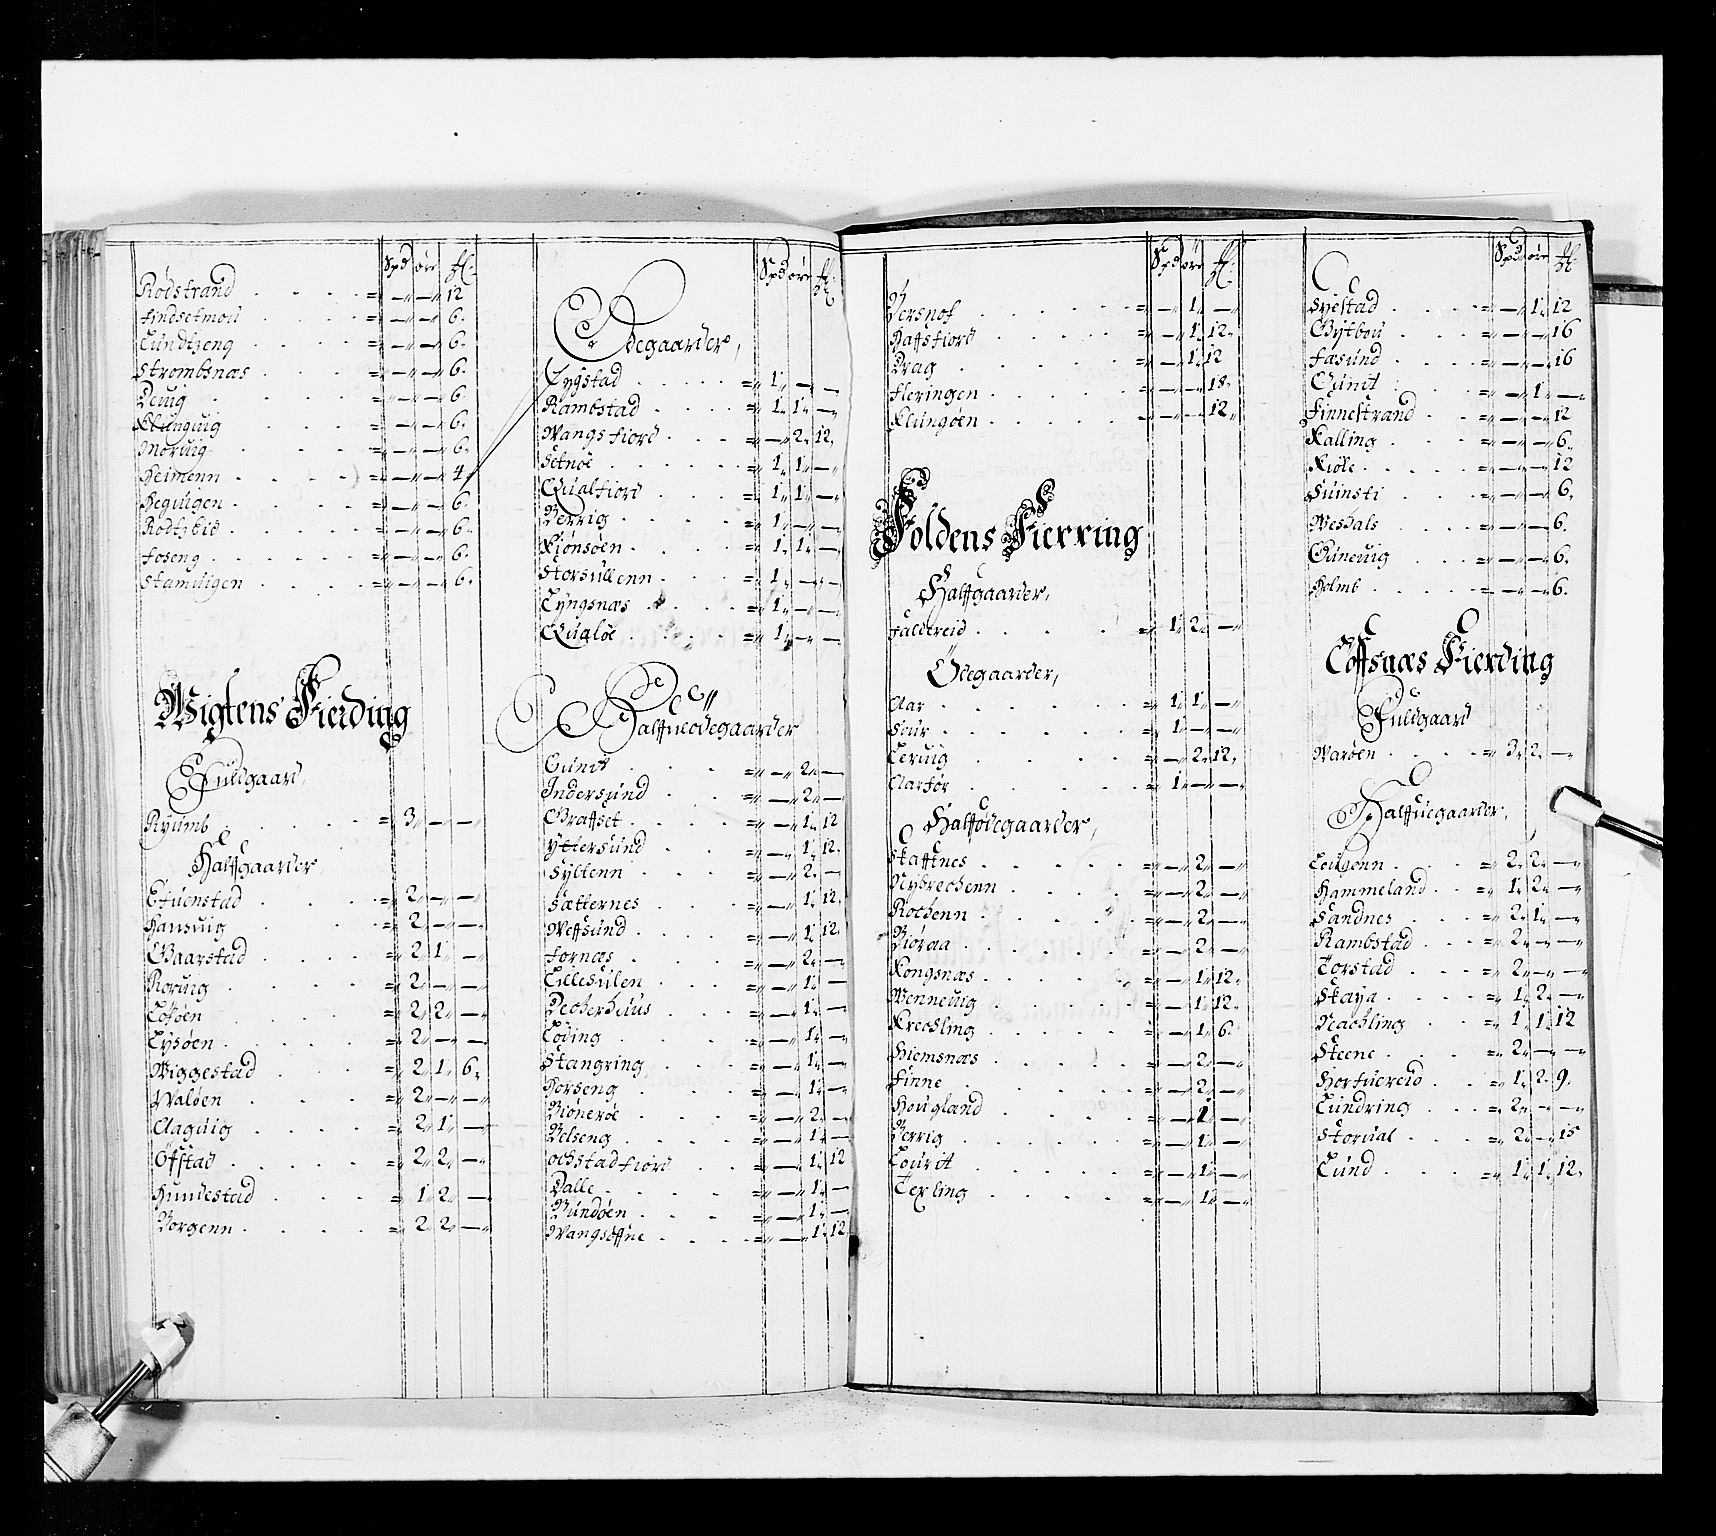 Spd öre ₰:
Rödstrand . . . . = — — 12
Findsetmou . . . = — — 6.
Lundtzeng . . . = — — 6.
Strombsnæs . . . = — — 6.
Deuig . . . . = — — 6.
Klunguig . . . = — — 6.
Moruig . . . . = — — 6.
Heimenn . . . . = — — 4.
Heguigen . . . . = — — 6.
Rodtzeid . . . . = — — 6.
Foseng . . . . = — — 6.
Stamuigen . . . . = — — 6.
Wigtens Fierding
Fuldgaard,
Ryumb . . . . = 3. — —
Halfgaarder,
Etuenstad . . . . = 2. — —
Hansuig . . . = 2. — —
Gaarstad . . . . = 2. 1. —
Roruig . . . . = 2. — —
Loföen . . . . = 2. 2. —
Lysöen . . . . = 2. — —
Wiggestad . . . . = 2. 1. 6.
Walöen . . . . = 2. — —
Aaguig . . . . = 2. 1. —
Öfstad . . . . = 2. 2. —
Hundestad . . . . = 1. 2. —
Borgenn . . . . = 2. 2. —
Spd öre ₰:
Ödegaarder,
Lygstad . . . . = 1. — —
Rambstad . . . . = 1. 1. —
Wangsfiord . . . = — 2. 12.
Setnöe . . . . = 1. 1. —
Qualfiord . . . . = 1. 1. —
Berrig . . . . = 1. — —
Kiönsöen . . . . = 1. 1. —
Storsullenn . . . = 1. — —
Lyngsnæs . . . . = 1. — —
Qualöe . . . . = 1. — —
Halfueödegaarder
Gunit . . . = — 2. —
Indersund . . . = — 2. —
Graffset . . . = — 1. 12
Yttersund . . . = — 1. 12.
Syltenn . . . = — 2. —
Sætternes . . . = — 1. 12.
Weffsund . . . = — 1. 12.
Fornæs . . . = — 2. —
Lillesulen . . . = — 1. —
Decherhuus . . . = — 1. —
Löding . . . = — 1. —
Stangring . . . = — 1. —
Horseng . . . = — 1. —
Biöneröe . . . = — 2. —
Belseng . . . = — 1. —
Ochstadfiord . . . = — 1. 12
Dalle . . . = — 1. —
Bundöen . . . = — 1. —
Wangsöffne . . . = — 1. 12
Spd öre ₰:
Bersnof . . . . = — 1. —
Haffsfiord . . . . = — 1. 12.
Drag . . . . = — 1. 12
Fleringen . . . . = — — 18.
Klungöen . . . . = — — 12.
Foldens Fierring
Halfgaarder,
Faldereid . . . . = 1. 2. —
Ödegaarder,
Aar . . . . = 1. 1. —
Seur . . . . = 1. — —
Leruig . . . . = — 2. 12.
Aarför . . . . = 1. — —
Halfödegaarder,
Skaffnes . . . . = — 2. —
Nybrechenn . . . . = — 2. —
Rochenn . . . . = — 2. —
Biöraa . . . . = — 2. —
Kongsnæs . . . . = — 1. 12.
Wenneuig . . . . = — 1. 12.
Krechling . . . . = — 1. 6.
Hiemsnæs . . . . = — 2. —
Finne . . . . = — 2. —
Hougland . . . . = — 1. —
Berrig . . . . = — 1. —
Lourit . . . . = — 1. —
Terling . . . . = — 1. —
Spd öre ₰:
Syestad . . . . = — 1. 12
Gytbou . . . . = — — 16
Fasund . . . . = — — 16
Gunit . . . . = — 1. —
Finnestrand . . = — — 12
Kalling . . . . = — — 6.
Kiöle . . . . = — — 12
Suinsti . . . . = — — 6.
Wesdals . . . . = — — 6.
Guneuig . . . . = — — 6.
Holmb . . . . = — — 6.
Loffsnæs Fierding
Fuldgaard
Waröen . . . . = 3. 2. —
Halffuegaarder,
Leugenn . . . . = 2. 2. —
Hammeland . . = 1. 2. —
Sandnes . . . = 2. 1. —
Rambstad . . . = 2. — —
Torstad . . . = 2. — —
Skaga . . . = 1. 2. —
Nachling . . . = 1. 1. 12
Steene . . . = 2. — —
Horfuereid . . . = 1. 2. 9.
Lundring . . . = 2. — —
Storual . . . = 2. — 15
Lund . . . . = 1. 1. 12.